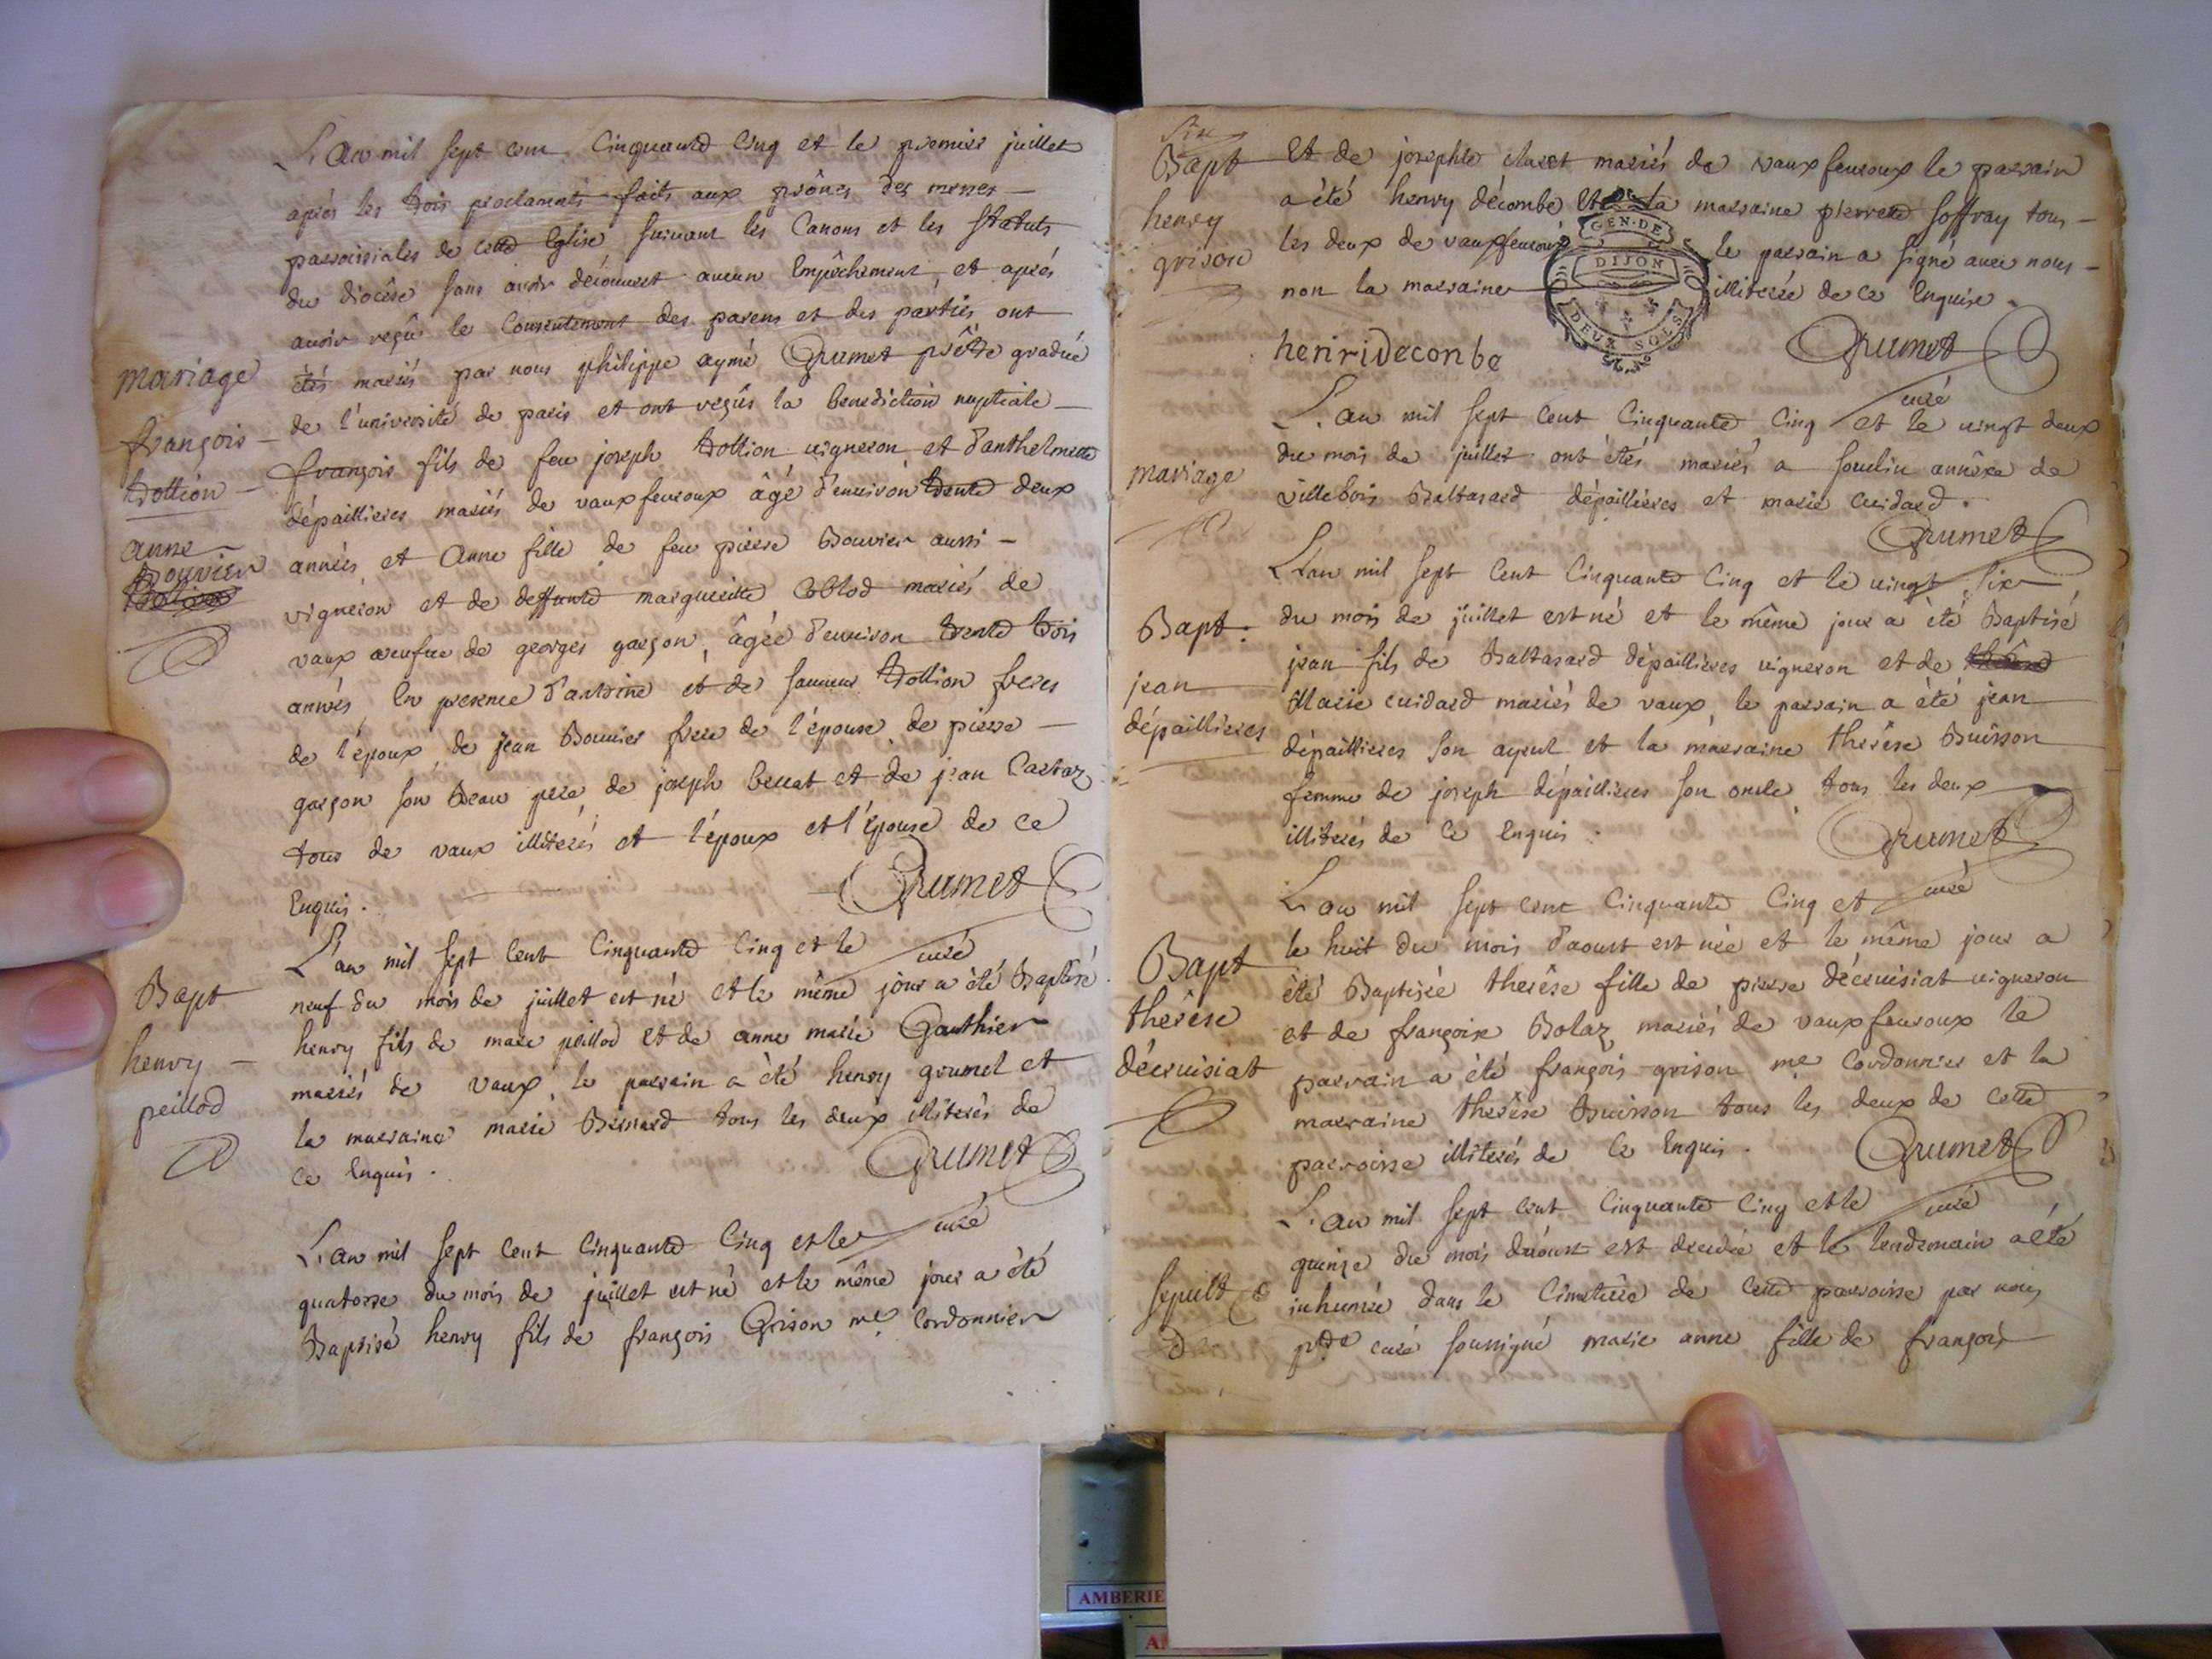 L'an mil sept cent cinquante cinq et le premier juillet
après les trois proclamats faits aux prônes des messes
parroissiales de cette Eglise suivant les Canons et les statuts
du diocèse sans avoir découvert aucun Empêchement, et après
avoir reçû le Consentement des parens et des partiés ont
mariage
étés mariés par nous philippe aymé Grumet prêtre gradué
de l'université de paris et ont reçûs la benediction nuptiale
françois
trollion
françois fils de feu joseph trollion vigneron et d'anthelmette
dépaillieres mariés de vaux fevroux âgé d'environ trente deux
anne
Bouvier
années et Anne fille de feu pierre Bouvier aussi
vigneron et de deffunte margueritte mariés de
vaux veufve de georges garçon, âgée d'environ trente trois
années, En presence d'antoine et de trollion freres
de l'époux, de jean Bouvier frere de l'épouse, de pierre
garçon son beau pere, de joseph et de jean
tous de vaux illiterés et l'époux et l'épouse de ce
Enquis.
Grumet
curé
L'an mil sept cent cinquante cinq et le
Bapt
henry
peillod
neuf du mois de juillet est né et le même jour a été Baptisé
henry fils de marc peillod et de anne marie Gauthier
mariés de vaux, le parrain a été henry grumet et
la marraine marie Bernard tous les deux illiterés de
ce Enquis.
Grumet
curé
L'an mil sept cent cinquante cinq et le
quatorse du mois de juillet est né et le même jour a été
Baptisé henry fils de françois Grison me cordonnier
six
Bapt
henry
grison
Et de josephte claret mariés de vaux fevroux le parrain
a été henry décombe Et la marraine pierrette soffray tous
les deux de vaux fevroux le parrain a signé avec nous
non la marraine illiterée de ce Enquise.
GEN. DE
DIJON
DEUX SOLS
henridecombe
Grumet
curé
L'an mil sept cent cinquante cinq et le vingt deux
mariage
du mois de juillet ont étés mariés a souclin annéxe de
villebois Baltasard dépaillieres et marie cuidard.
Grumet
L'an mil sept cent cinquante cinq et le vingt six
Bapt.
jean
dépaillieres
du mois de juillet est né et le même jour a été Baptisé
jean fils de Baltasard dépaillieres vigneron et de
Marie cuidard mariés de vaux, le parrain a été jean
dépaillieres son ayeul et la marraine thérèse Buisson
femme de joseph dépaillieres son oncle, tous les deux
illiterés de ce Enquis.
Grumet
curé
L'an mil sept cent cinquante cinq et
Bapt
thérèse
décruisiat
le huit du mois d'aoust est née et le même jour a
été Baptisée thérèse fille de pierre décruisiat vigneron
et de françoise Bolaz mariés de vaux fevroux le
parrain a été françois grison me cordonnier et la
marraine thérèse buisson tous les deux de cette
parroisse illiterés de ce Enquis.
Grumet
curé
L'an mil sept cent cinquante cinq et le
quinze du mois d'aoust est decedée et le lendemain a été
sepult
inhumée dans le cimetiere de cette parroisse par nous
ptre curé soussigné marie anne fille de françois
AMBERIE